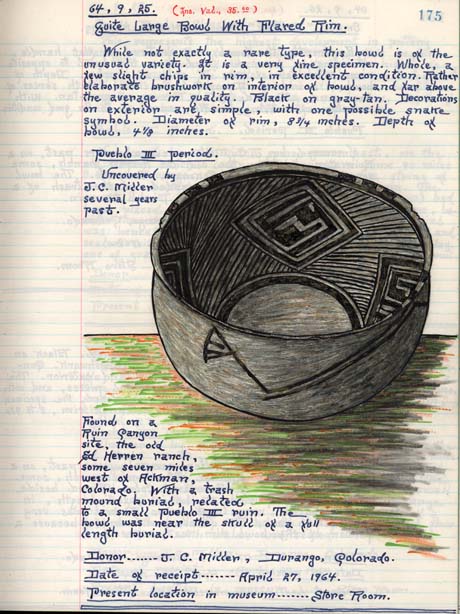 64, 9, 25. (Ins. Val., 35.00)
175
Quite Large Bowl With Flared Rim.
While not exactly a rare type, this bowl is of the
unusual variety. It is a very fine specimen. Whole, a
few slight chips in rim, in excellent condition. Rather
elaborate brushwork on interior of bowl, and far above
the average in quality. Black on gray-tan. Decorations
on exterior are simple, with one possible snake
symbol. Diameter of rim, 8 3/4 inches. Depth of
bowl, 4 1/8 inches.
Pueblo III Period.
Uncovered by
J.C. Miller
several years
past.
Found on a
Ruin Canyon
site, the old
Ed Herren ranch,
some seven miles
west of Ackman,
Colorado. With a trash
mound burial, related
to a small Pueblo III ruin. The
bowl was near the skull of a full
length burial.
Donor....... J. C. Miller, Durango, Colorado.
Date of receipt------ April 27, 1964.
Present location in museum------ Store Room.